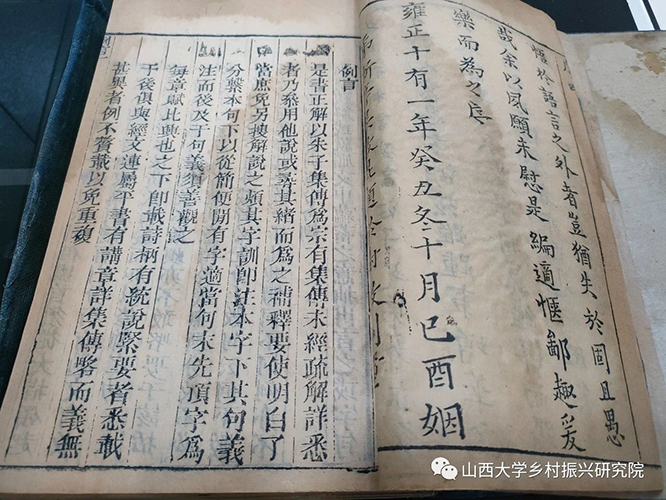 悟於語言之外者豈猶失於固且愚
哉余以夙願未慰是編適愜鄙趣爰
樂而為之序
雍正十有一年癸丑冬十月已酉姻
例言
是書正解以朱子集傳爲宗有集傳未經疏解詳悉
者乃參用他說或尋其緒而爲之補釋要使明白了
當庶免另搜解說之煩其字訓卽註本字下其句義
分繫本句下以從簡便間有字適當句末先頂字爲
注而後及于句義須善觀之
每章賦比興也之下卽載詩柄有統說緊要者悉載
于後俱與經文連屬平書有講章詳集傳畧而義無
甚異者例不贅載以免重複
山西大学乡村振兴研究院